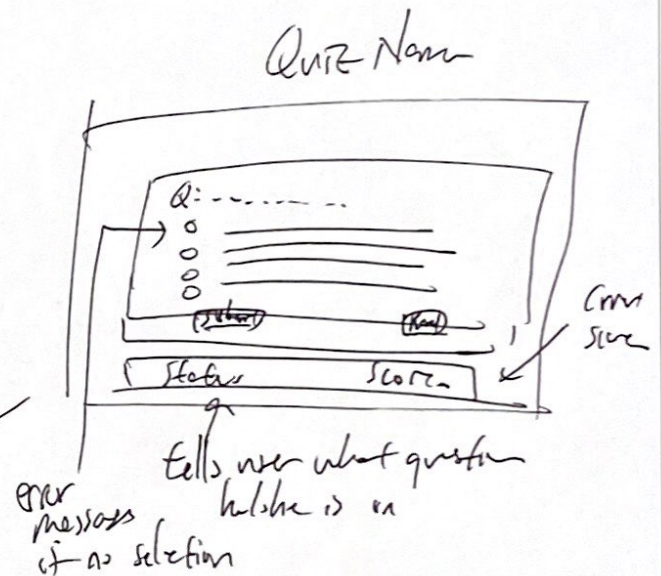 Quiz Name
Q:
Submit
Status Score
Current
score
tells user what question
he/she is on
error
message
if no selection